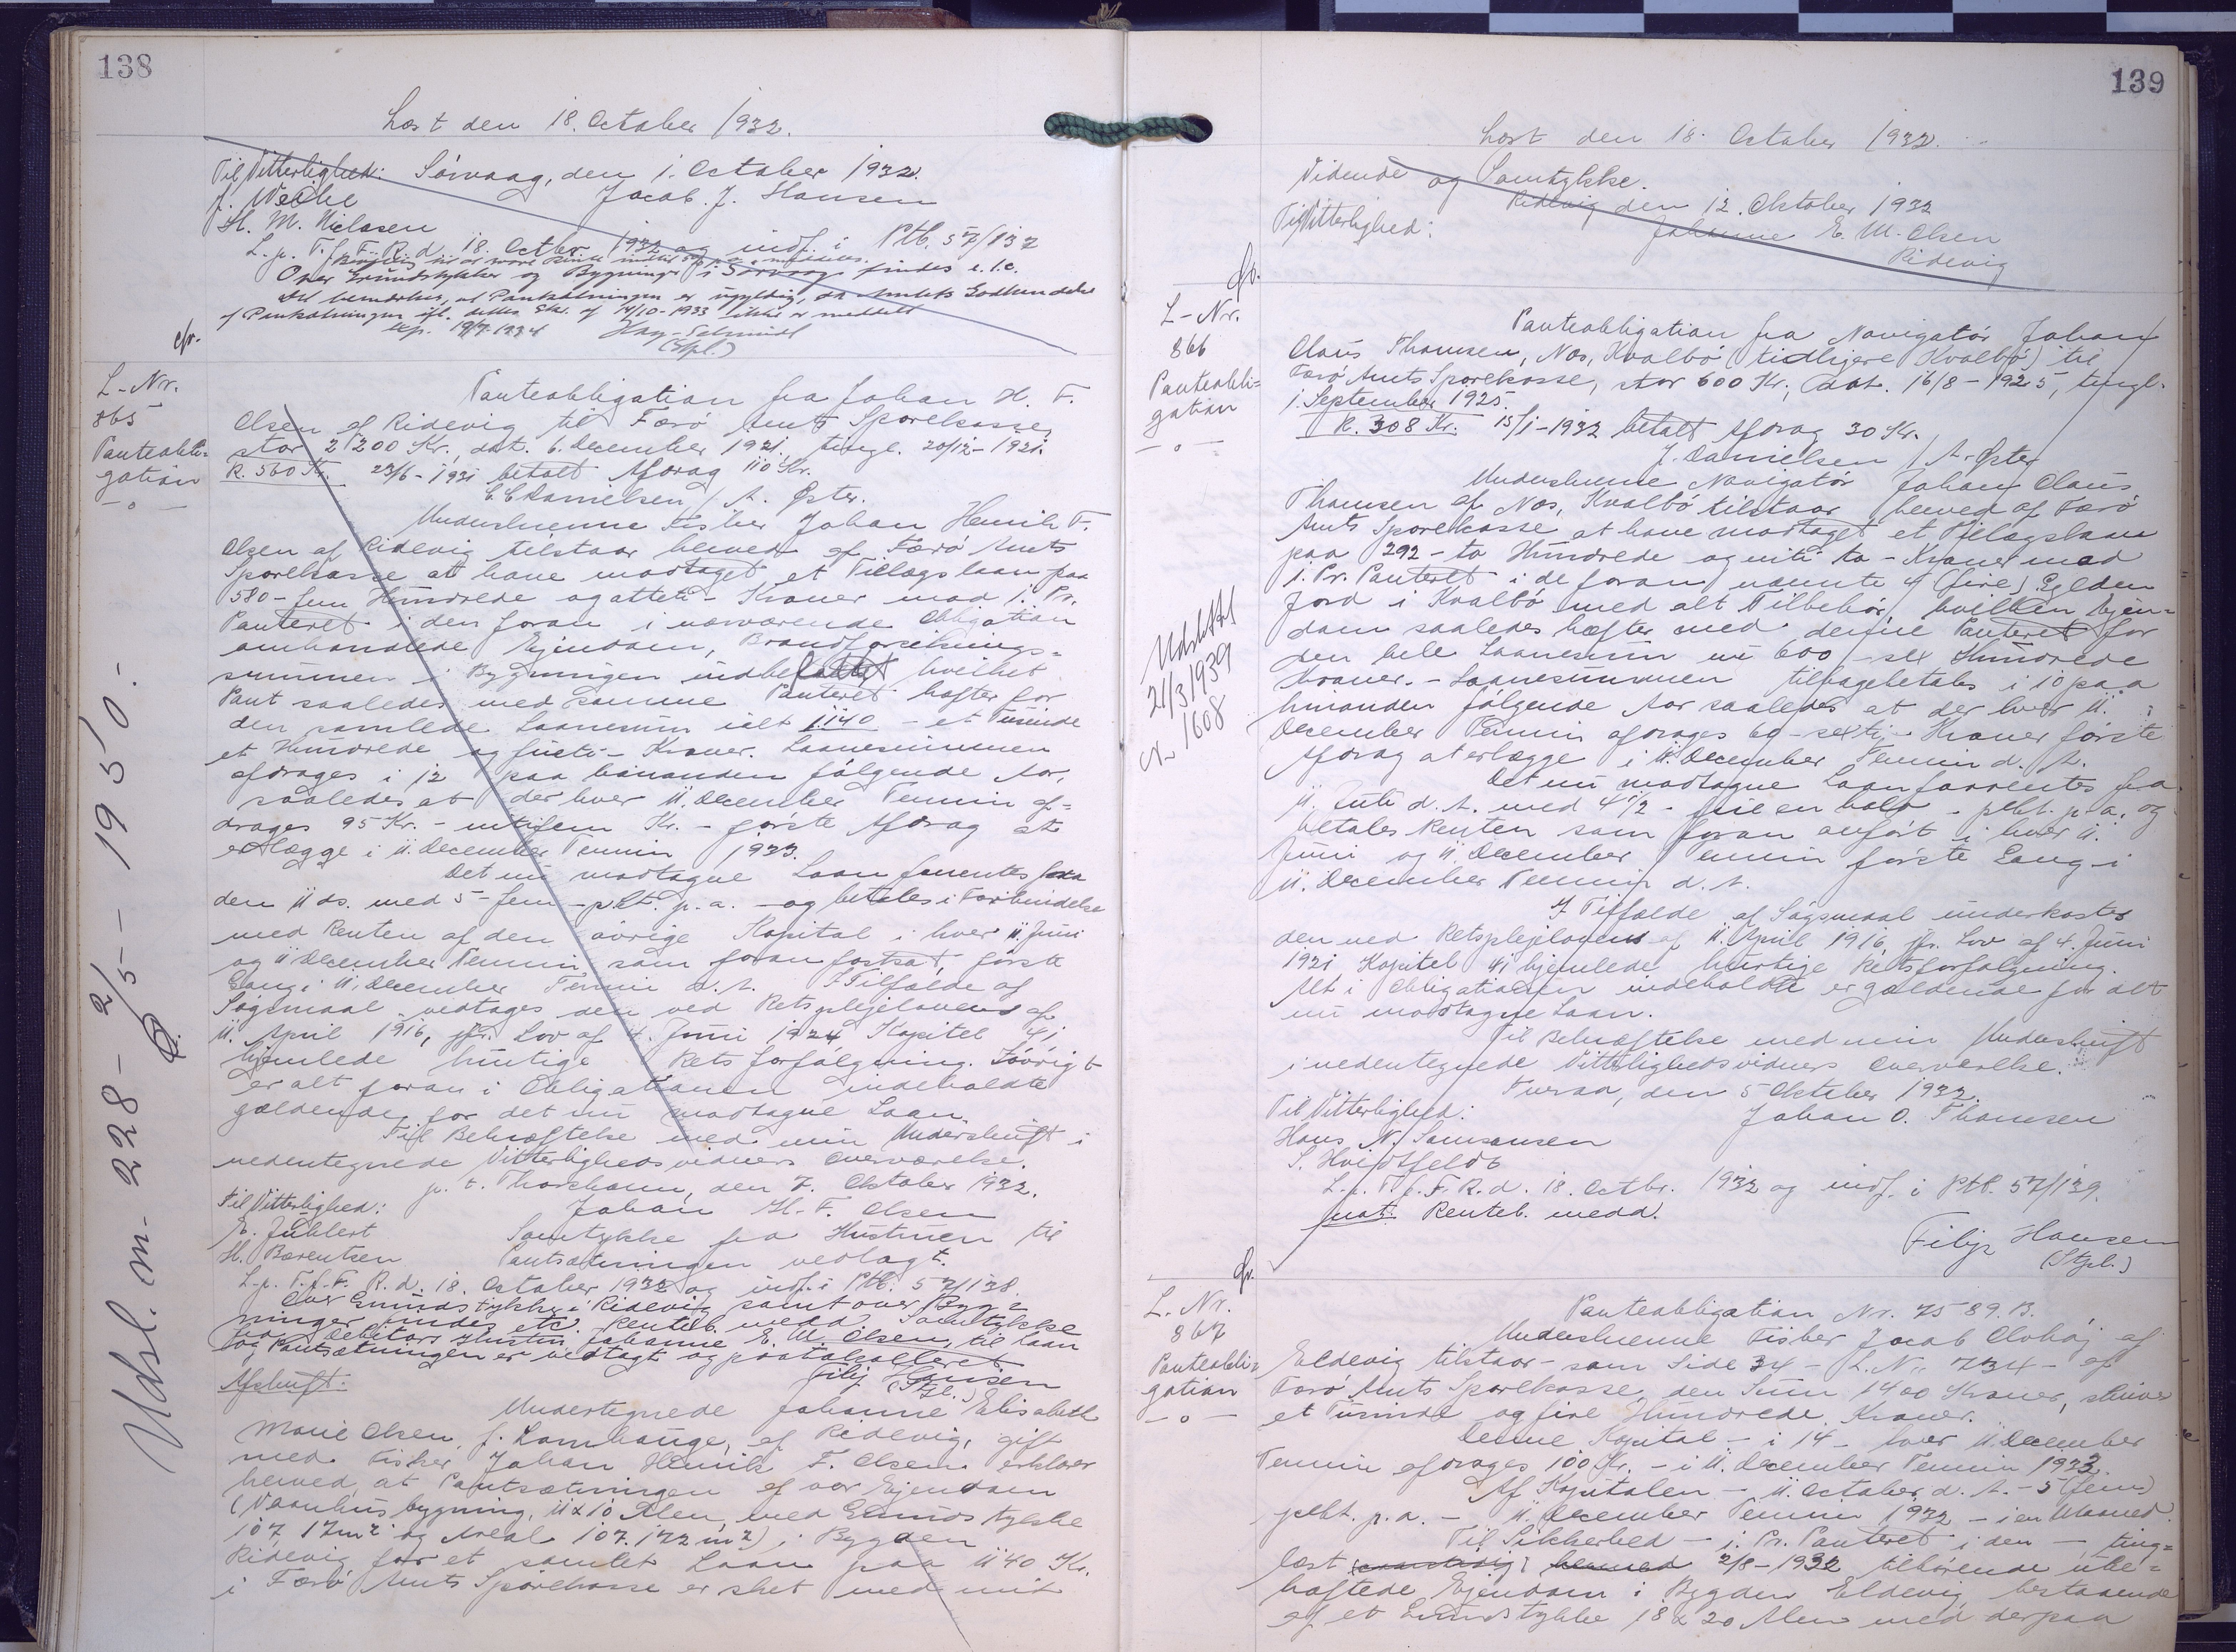 138
Læst den 18. October 1932.
Til Vitterlighed: Sörvaag, den 1. October 1932.
J. Weihe Jacob. J. Hansen
H. M. Nielasen
L. p. T. f. F. R. d. 18. Octbr. 1932 og indf. i Ptb. 57/137
Over Grundstykker og Bygninger i Sørvaag findes e.l.c.
Det bemærkes, at Pantsætningen er ugyldig, da Amtets Godkendelse
af Pantsætningen ifl. dettes Skr. af 14/10-1933 ikke er meddelt
exp. 19/7-1934
(Stpl.)
cfr.
L-Nr.
865
Panteobli-
gation
-o-
Panteobligation fra Johan H. F.
Olsen af Ridevig til Færö Amts Sparekasse,
stor 2200 Kr., dat. 6. December 1921, tingl. 20/12-1921.
R. 560 Kr. 23/6-1931 betalt Afdrag 110 Kr.
C. C. Danielsen / A. Øster.
Underskrevne Fisker Johan Henrik F.
Olsen af Ridevig tilstaar herved af Færö Amts
Sparekasse at have modtaget et Tillægslaan paa
580 - fem Hundrede ogatteti - Kroner mod 1. Pr.
Panteret i den foran i nærværende Obligation
omhandlede Ejendom, Brandforsikrings-
summen i Bygningen indbefattet hvilket
Pant saaledes med samme Panteret hæfter for
den samlede Laanesum ialt 1140 - et Tusinde
et Hundrede og fyrti - Kroner. Laanesummen
afdrages i 12 paa hinanden fölgende Aar,
saaledes at der hver 11. December Termin af-
drages 95 Kr. - nitifem Kr. - förste Afdrag at
erlægge i 11. December Termin 1933.
Det nu modtagne Laan forrentes fra
den 11 ds. med 5 - fem - pkt. p. a. - og betales i Forbindelse
med Renten af den övrige Kapital i hver 11. Juni
og 11 December Termin, som foran fastsat, förste
Gang i 11. December Termin d. A. I Tilfælde af
Sögsmaal vedtages den ved Retsplejelovens af
11. April 1916, jfr. Lov af 4. Juni 1924 Kapitel 41
hjemlede hurtige Retsforfölgning. Iövrigt
er alt foran i Obligationen indeholdte
gældende for det nu modtagne Laan.
Til Bekræftelse med min Underskrift i
nedentegnede Vitterlighedsvidners Overværelse.
p. t. Thorshavn, den 7. Oktober 1932.
Til Vitterlighed: Johan H. F. Olsen
E. Juhlert Samtykke fra Hustruen til
H. Barentsen Pantsætningen vedlagt.
L. p. T. f. F. R. d. 18. October 1932 og indf. i Ptb. 57/138.
Over Grundstykke i Ridevig samt over Byg-
ninger findes etc. Renteb. medd. Samtykke
fra Debitors Hustru Johanne E. M. Olsen, til Laan
og Pantsætningen er vedlagt og protokolleret.
Filip Hansen
(Stpl.)
Afskrift:
Undertegnede Johanne Elisabeth
Marie Olsen, f. Lamhauge, af Ridevig, gift
med Fisker Johan Henrik F. Olsen erklærer
herved, at Pantsætningen af vor Ejendom
(Vaanhusbygning, 11 x 10 Alen, med Grundstykke
107, 17m² og Areal 107.172 m²) i Bygden
Ridevig for et samlet Laan paa 1140 Kr.
i Færö Amts Sparekasse er sket med mit
Udsl. m. 228 - 2/5 - 1950.-
139
Læst den 18. October 1932.
Vidende og Samtykke.
Ridevig den 12. Oktober 1932
Til Vitterlighed: Johanne E. M. Olsen
Ridevig
cfr.
L-Nr.
866
Panteobli-
gation
-o-
Udslettet
21/3 1939
Nr. 1608
Panteobligation fra Navigatör Johan
Claus Thomsen, Nes, Kvalbö (tidligere Kvalbö) til
Færö Amts Sparekasse, stor 600 Kr., dat. 16/8-1925, tingl.
1. September 1925.
R. 308 Kr. 15/1-1932 betalt Afdrag 30 Kr.
J. Danielsen / A. Øster
Underskrevne Navigatör Johan Claus
Thomsen af Nes, Kvalbö tilstaar herved af Færö
Amts Sparekasse at have modtaget et Tillægslaan
paa 292 - to Hundrede og niti to - Kroner mod
1. Pr. Panteret i de foran nævnte 4 (fire) Gylden
Jord i Kvalbö med alt Tilbehör, hvilken Ejen-
dom saaledes hæfter med denne Panteret for
den hele Laanesum nu 600 - sex Hundrede
Kroner. - Laanesummen tilbagebetales i 10 paa
hinanden fölgende Aar saaledes at der hver 11.
December Termin afdrages 60 - sexti - Kroner förste
Afdrag at erlægge i 11. December Termin d. A.
Det nu modtagne Laan forrentes fra
11. Juli d. A. med 4 1/2 - fire en halv - pkt. p. a. og
betales Renten som foran anfört i hver 11.
Juni og 11. December Termin förste Gang i
11. December Termin d. A.
I Tilfælde af Sögsmaal underkastes
den ved Retsplejelovens af 11. April 1916, jfr. Lov af 4. Juni
1921 Kapitel 41 hjemlede hurtige Retsforfölgning.
Alt i Obligationen indeholdte er gældende for alt
nu modtagne Laan.
Til Bekræftelse med min Underskrift
i nedentegnede Vitterlighedsvidners Overværelse.
Tveraa, den 5 Oktober 1932.
Til Vitterlighed: Johan C. Thomsen
Hans N. Samsonsen
S. Hvidtfeldt
L. p. T. f. F. R. d. 18. Octbr. 1932 og indf. i Ptb. 57/139.
not. Renteb. medd.
Filip Hansen
(Stpl.)
cfr.
L. Nr.
867
Panteobli-
gation
-o-
Panteobligation Nr. 7589. B.
Underskrevne Fisker Jacob Olvhöj af
Eldevig tilstaar - som Side 34 - L. Nr. 734 - af
Færö Amts Sparekasse den Sum 1400 Kroner, skriver
et Tusinde og fire Hundrede Kroner.
Denne Kapital - i 14 - hver 11. December
Termin afdrages 100 Kr. - i 11. December Termin 1933.
Af Kapitalen - 11. October d. A. - 5 (fem)
pkt. p. a. - 11. December Termin 1932 - i en Maaned.
Til Sikkerhed - 1. Pr. Panteret i den - ting-
læst 2/8-1932 tilhörende ube-
hæftede Ejendom i Bygden Eldevig bestaaende
af et Grundstykke 18 x 20 Alen med derpaa